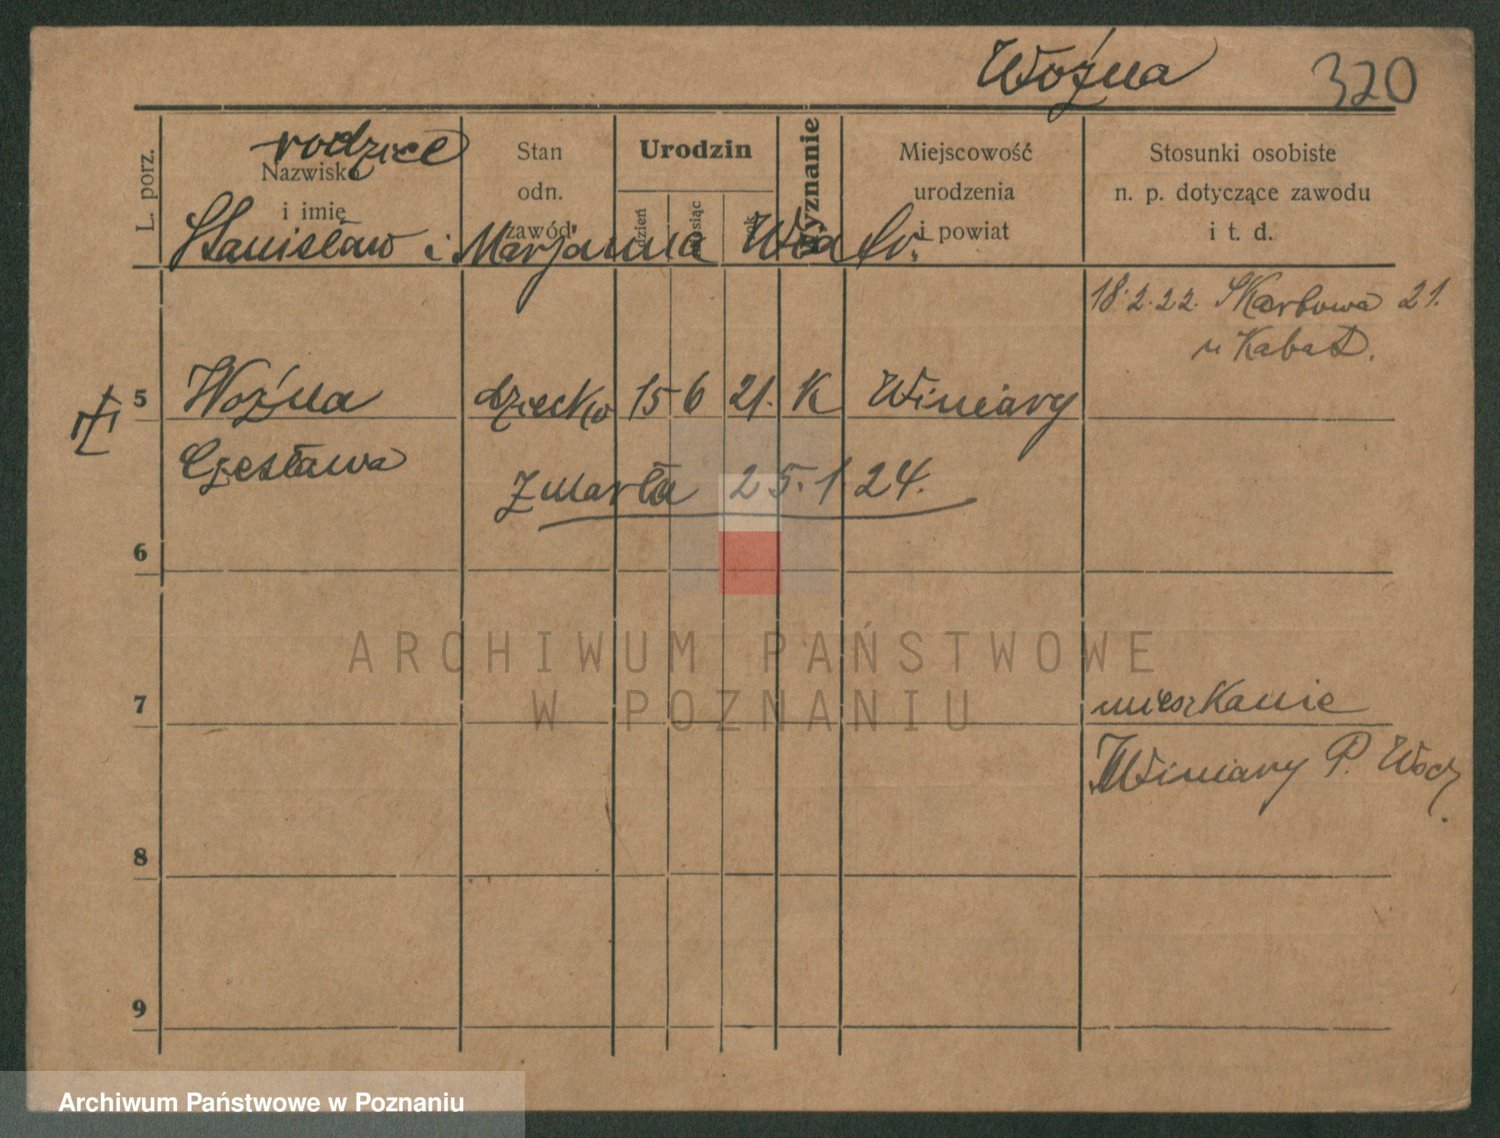 Woźna 320
L. porz.
rodzice
Nazwisko
i imię
Stan
odn.
zawód
Urodzin
dzień
miesiąc
rok
Wyznanie
Miejscowość
urodzenia
i powiat
Stosunki osobiste
n. p. dotyczące zawodu
i t. d.
Stanisław i Marjanna
18.2.22. Skarbowa 21.
u Kabat.
5 Woźna dziecko 15 6 21. K Winiary
Czesława
zmarła 25.1 24.
6
ARCHIWUM PAŃSTWOWE
W POZNANIU
7 mieszkanie
Winiary P.
8
9
Archiwum Państwowe w Poznaniu